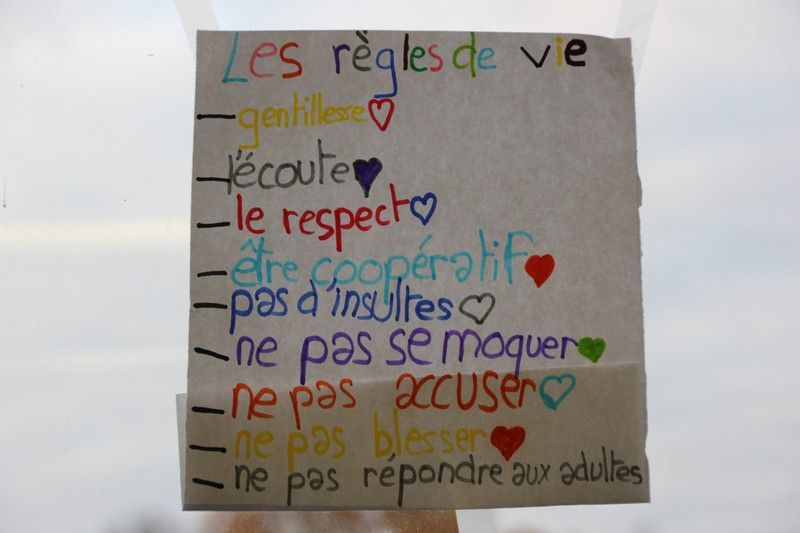 Les règles de vie
— gentillesse
— l'écoute
— le respect
— être coopératif
— pas d'insultes
— ne pas se moquer
— ne pas accuser
— ne pas blesser
— ne pas répondre aux adultes